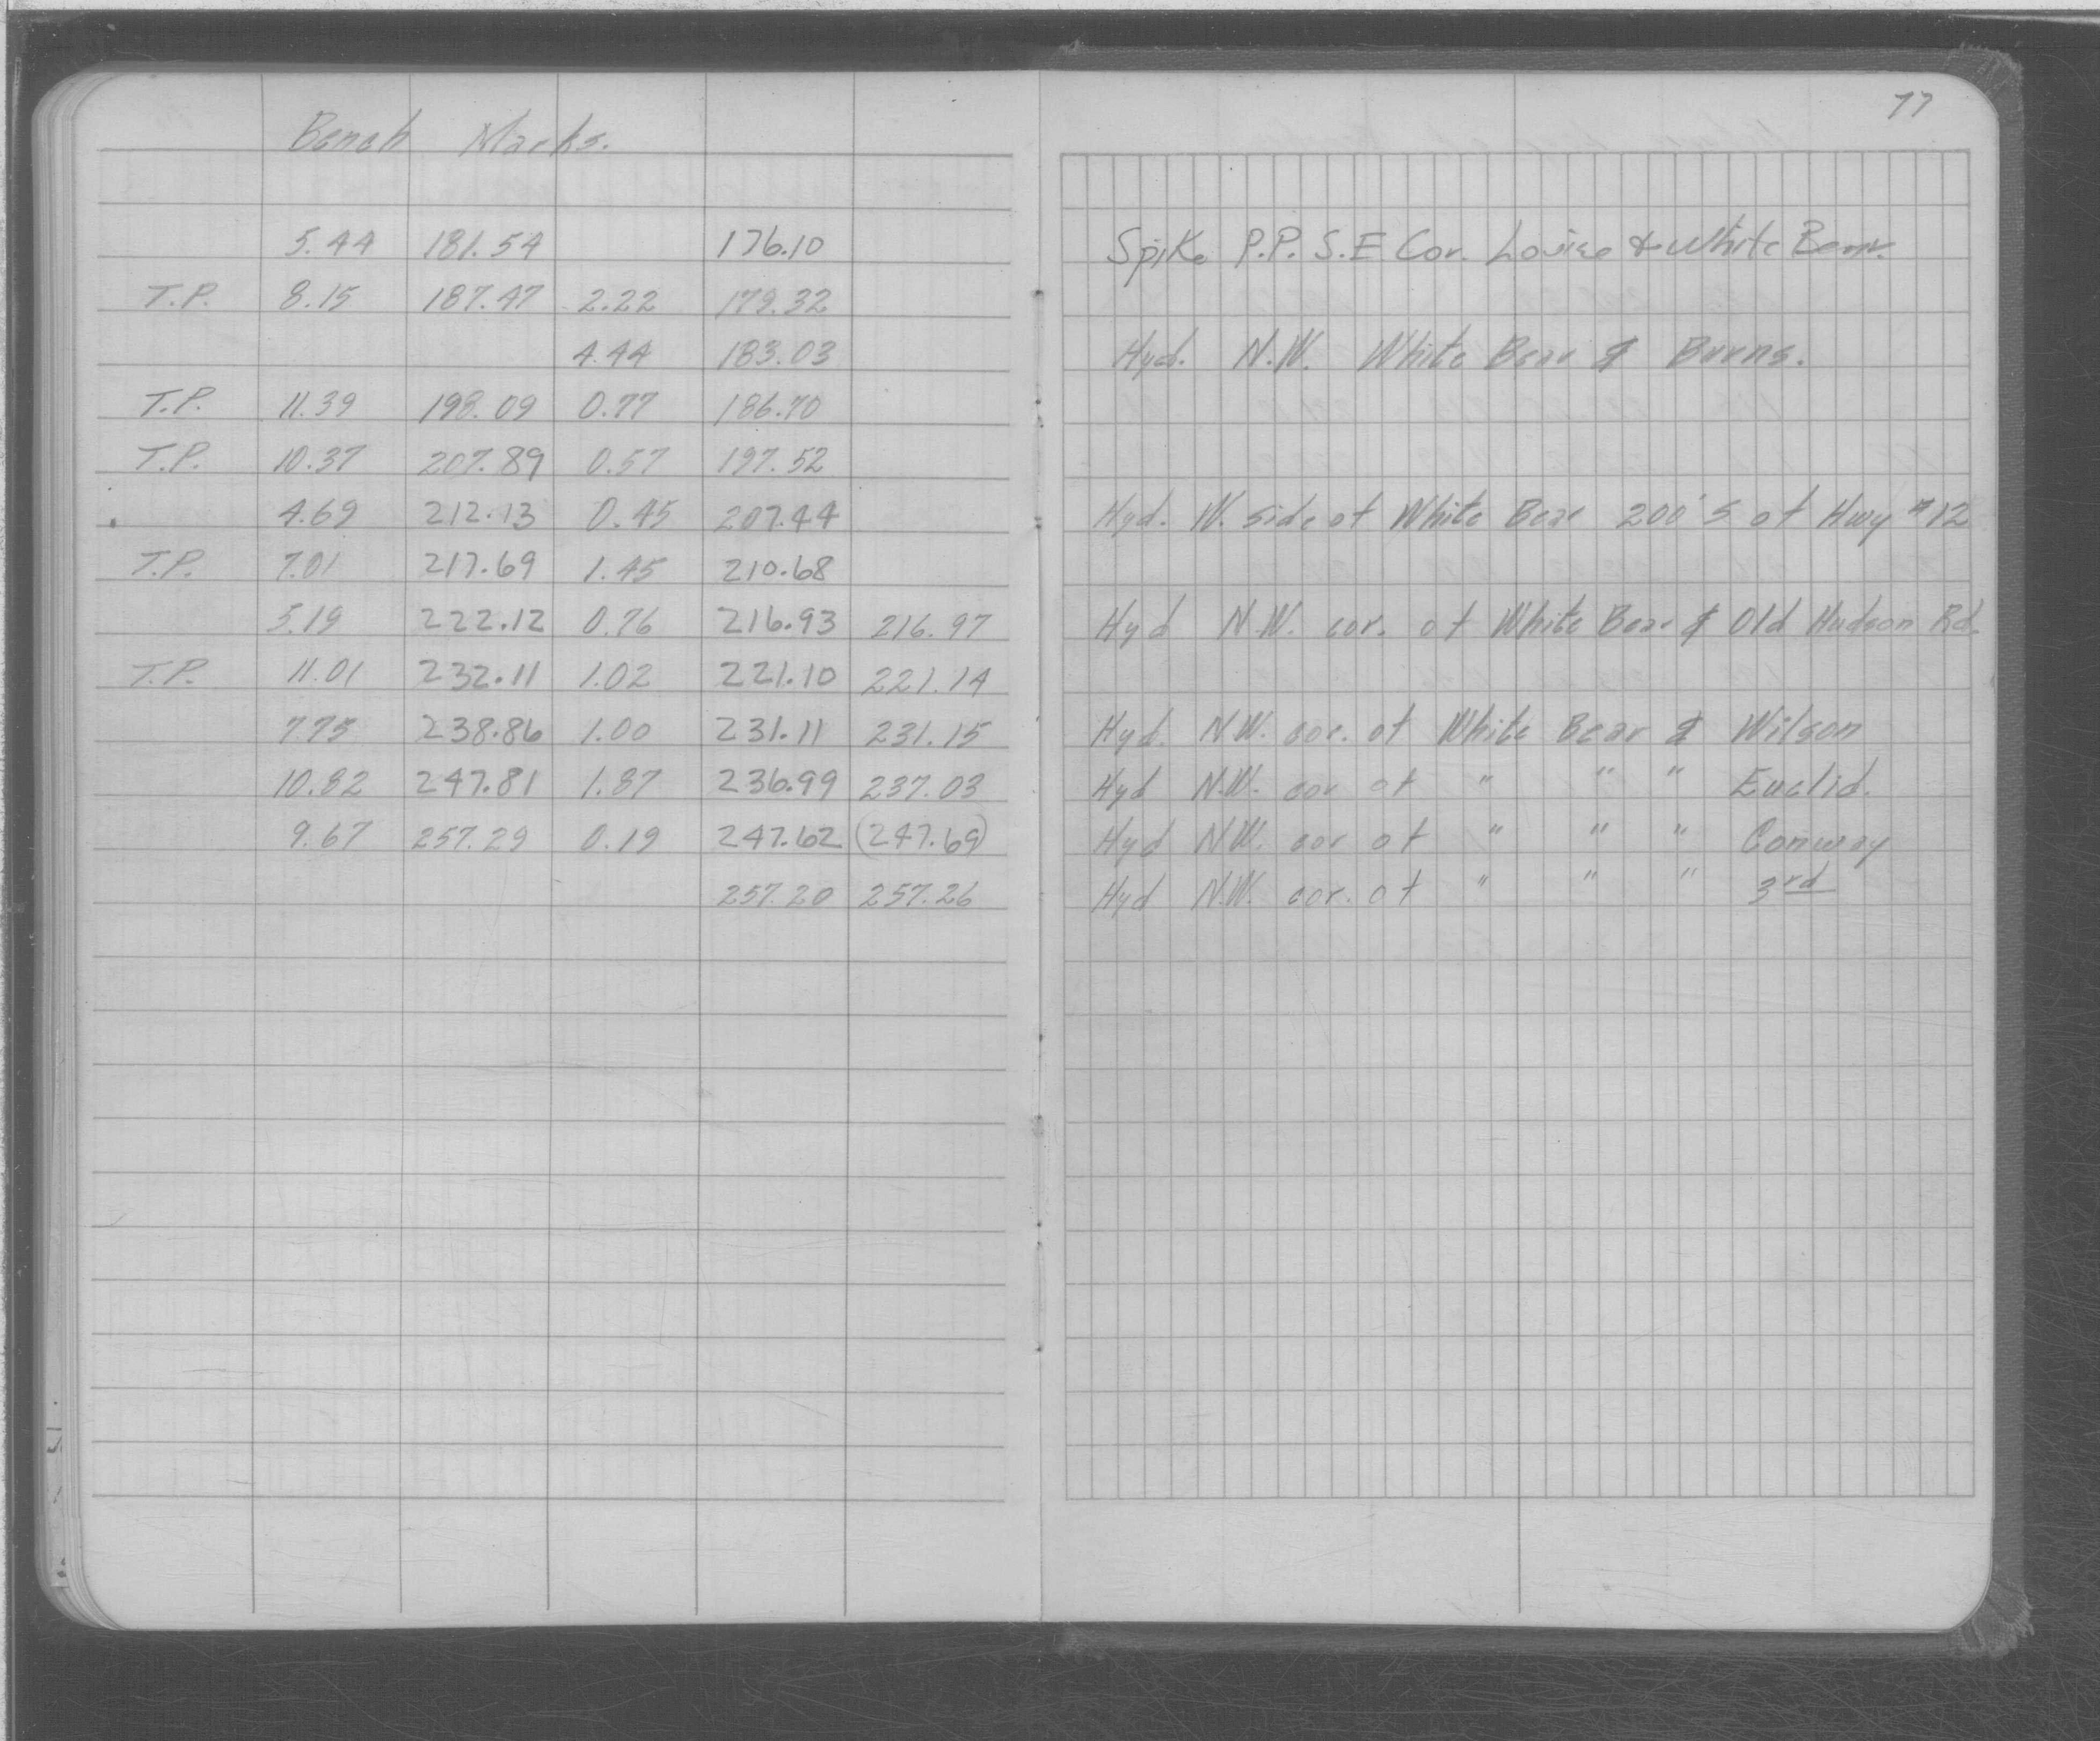 77
Bench Marks.
5.44 181.54 176.10 Spike P.P. S.E Cor. Louise & White Bear.
T.P. 8.15 187.47 2.22 179.32
4.44 183.03 Hyd. N.W. White Bear & Burns.
T.P. 11.39 198.09 0.77 186.70
T.P. 10.37 207.89 0.57 197.52
4.69 212.13 0.45 207.44 Hyd. W. side of White Bear 200' S of Hwy #12
T.P. 7.01 217.69 1.45 210.68
5.19 222.12 0.76 216.93 216.97 Hyd N.W. cor. of White Bear & Old Hudson Rd.
T.P. 11.01 232.11 1.02 221.10 221.14
7.75 238.86 1.00 231.11 231.15 Hyd. N.W. cor. of White Bear & Wilson
10.82 247.81 1.87 236.99 237.03 Hyd N.W. cor of " " " Euclid.
9.67 257.29 0.19 247.62 (247.69) Hyd N.W. cor of " " " Conway
257.20 257.26 Hyd N.W. cor. of " " " 3rd